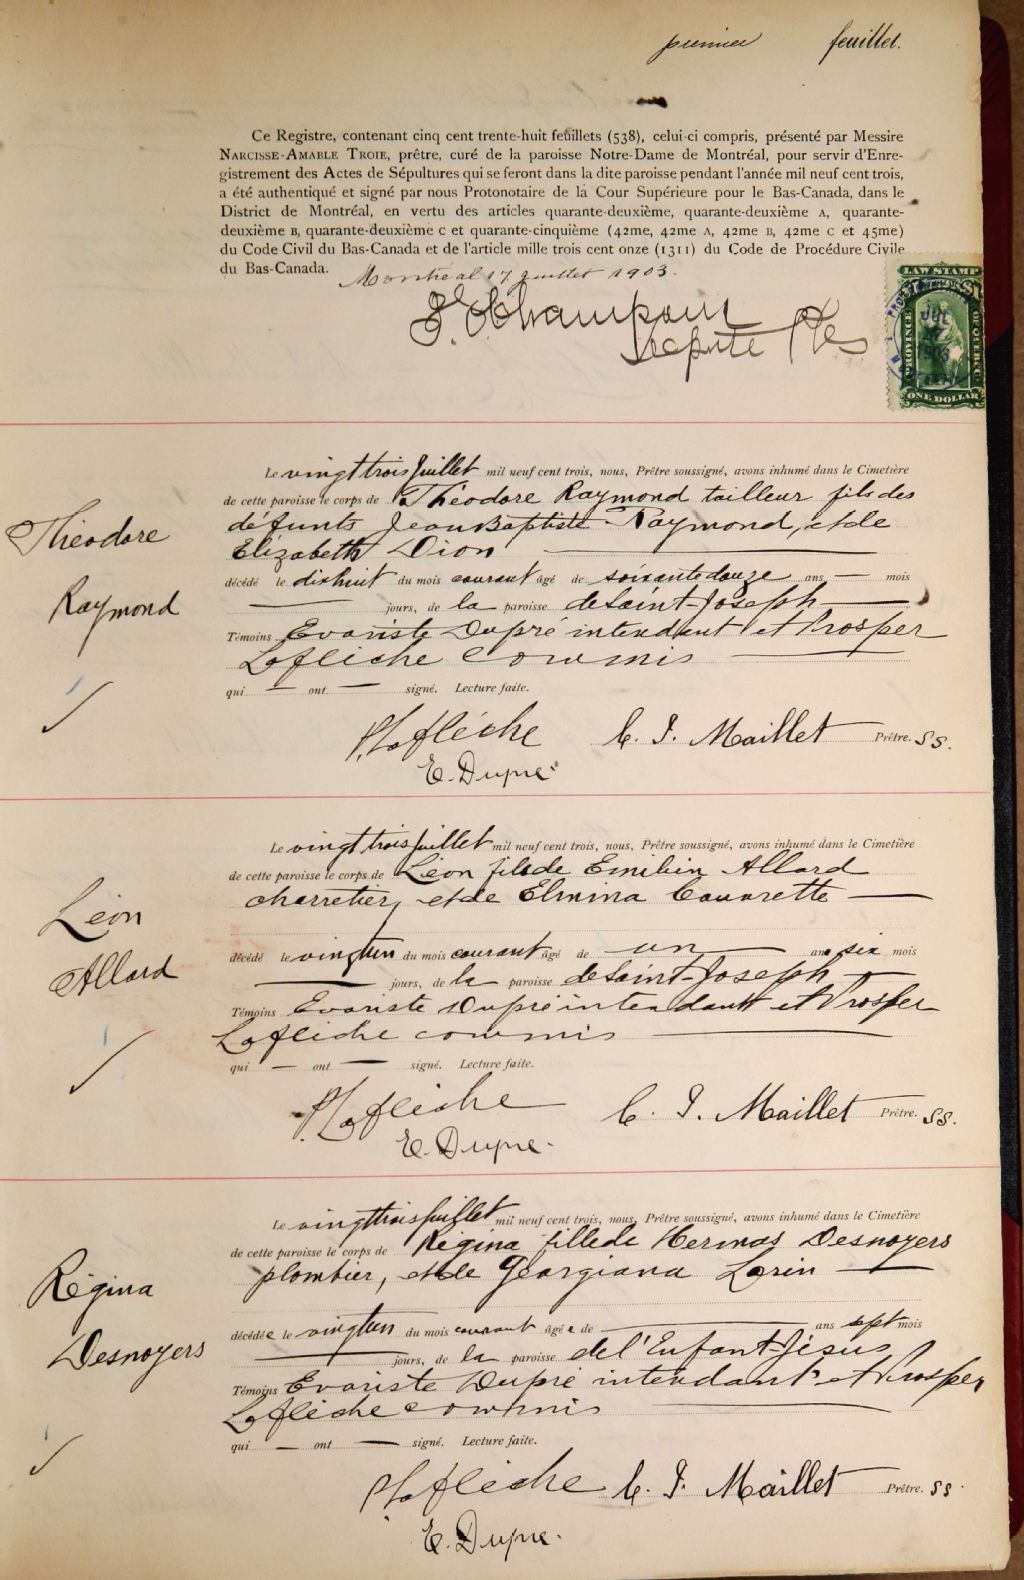 premier feuillet.
Ce Registre, contenant cinq cent trente-huit feuillets (538), celui-ci compris, présenté par Messire
NARCISSE-AMABLE TROIE, prêtre, curé de la paroisse Notre-Dame de Montréal, pour servir d'Enre-
gistrement des Actes de Sépultures qui se feront dans la dite paroisse pendant l'année mil neuf cent trois,
a été authentiqué et signé par nous Protonotaire de la Cour Supérieure pour le Bas-Canada, dans le
District de Montréal, en vertu des articles quarante-deuxième, quarante-deuxième A, quarante-
deuxième B, quarante-deuxième C et quarante-cinquième (42me, 42me A, 42me B, 42me C et 45me)
du Code Civil du Bas-Canada et de l'article mille trois cent onze (1311) du Code de Procédure Civile
du Bas-Canada. Montréal 17 juillet 1903.
Député
LAW STAMP
PROVINCE OF QUEBEC
JUL
17
1903
ONE DOLLAR
Théodore
Raymond
Le vingt trois Juillet mil neuf cent trois, nous, Prêtre soussigné, avons inhumé dans le Cimetière
de cette paroisse le corps de Théodore Raymond tailleur fils des
défunts Jean Baptiste Raymond, et de
Elizabeth Dion
décédé le dixhuit du mois courant âgé de soixante douze ans — mois
— jours, de la paroisse de Saint-Joseph
Témoins Evariste Dupré intendant et Prosper
Laflèche commis
qui — ont — signé. Lecture faite.
P. Laflèche C. J. Maillet Prêtre. SS.
E. Dupré
Léon
Allard
Le vingt trois juillet mil neuf cent trois, nous, Prêtre soussigné, avons inhumé dans le Cimetière
de cette paroisse le corps de Léon fils de Emilien Allard
charretier, et de Elmina Couvrette
décédé le vingtun du mois courant âgé de un ans six mois
— jours, de la paroisse de Saint-Joseph
Témoins Evariste Dupré intendant et Prosper
Laflèche commis
qui — ont — signé. Lecture faite.
P. Laflèche C. J. Maillet Prêtre. SS.
E. Dupré.
Régina
Desnoyers
Le vingt trois juillet mil neuf cent trois, nous, Prêtre soussigné, avons inhumé dans le Cimetière
de cette paroisse le corps de Régina fille de Hermas Desnoyers
plombier, et de Georgiana Lorin
décédée le vingtun du mois courant âgée de — ans sept mois
— jours, de la paroisse de l'Enfant-Jésus
Témoins Evariste Dupré intendant et Prosper
Laflèche commis
qui — ont — signé. Lecture faite.
P. Laflèche C. J. Maillet Prêtre. SS.
E. Dupré.